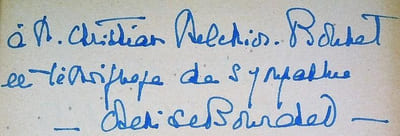 à M. Christian Melchior-Bonnet
ce témoignage de sympathie
— Denise Bourdet —